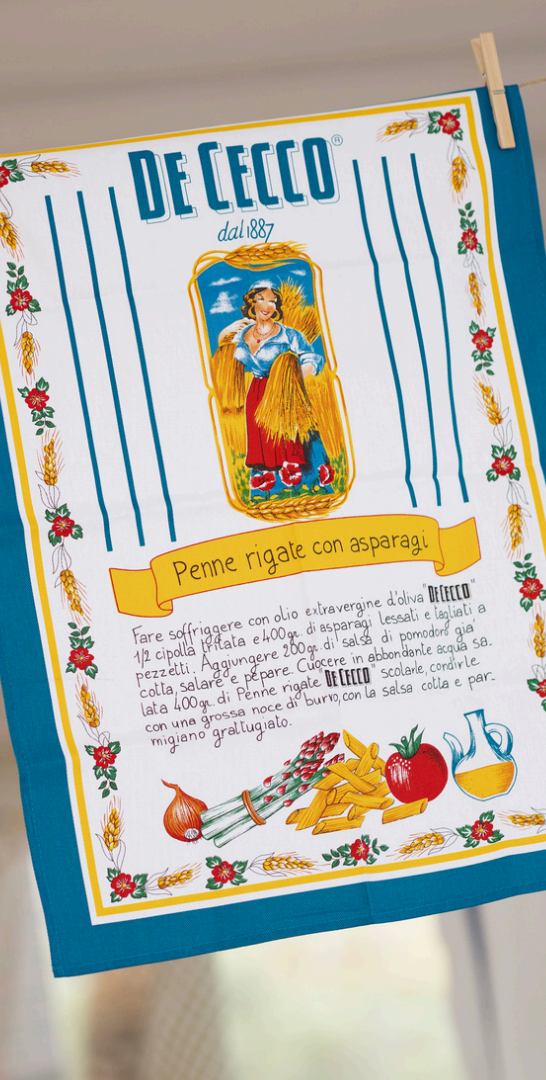 DE CECCO®
dal 1887
Penne rigate con asparagi
Fare soffriggere con olio extravergine d'oliva "DE CECCO"
1/2 cipolla tritata e 400 gr. di asparagi lessati e tagliati a
pezzetti. Aggiungere 200 gr. di salsa di pomodoro già
cotta, salare e pepare. Cuocere in abbondante acqua sa-
lata 400 gr. di Penne rigate "DE CECCO" scolarle, condirle
con una grossa noce di burro, con la salsa cotta e par-
migiano grattugiato.